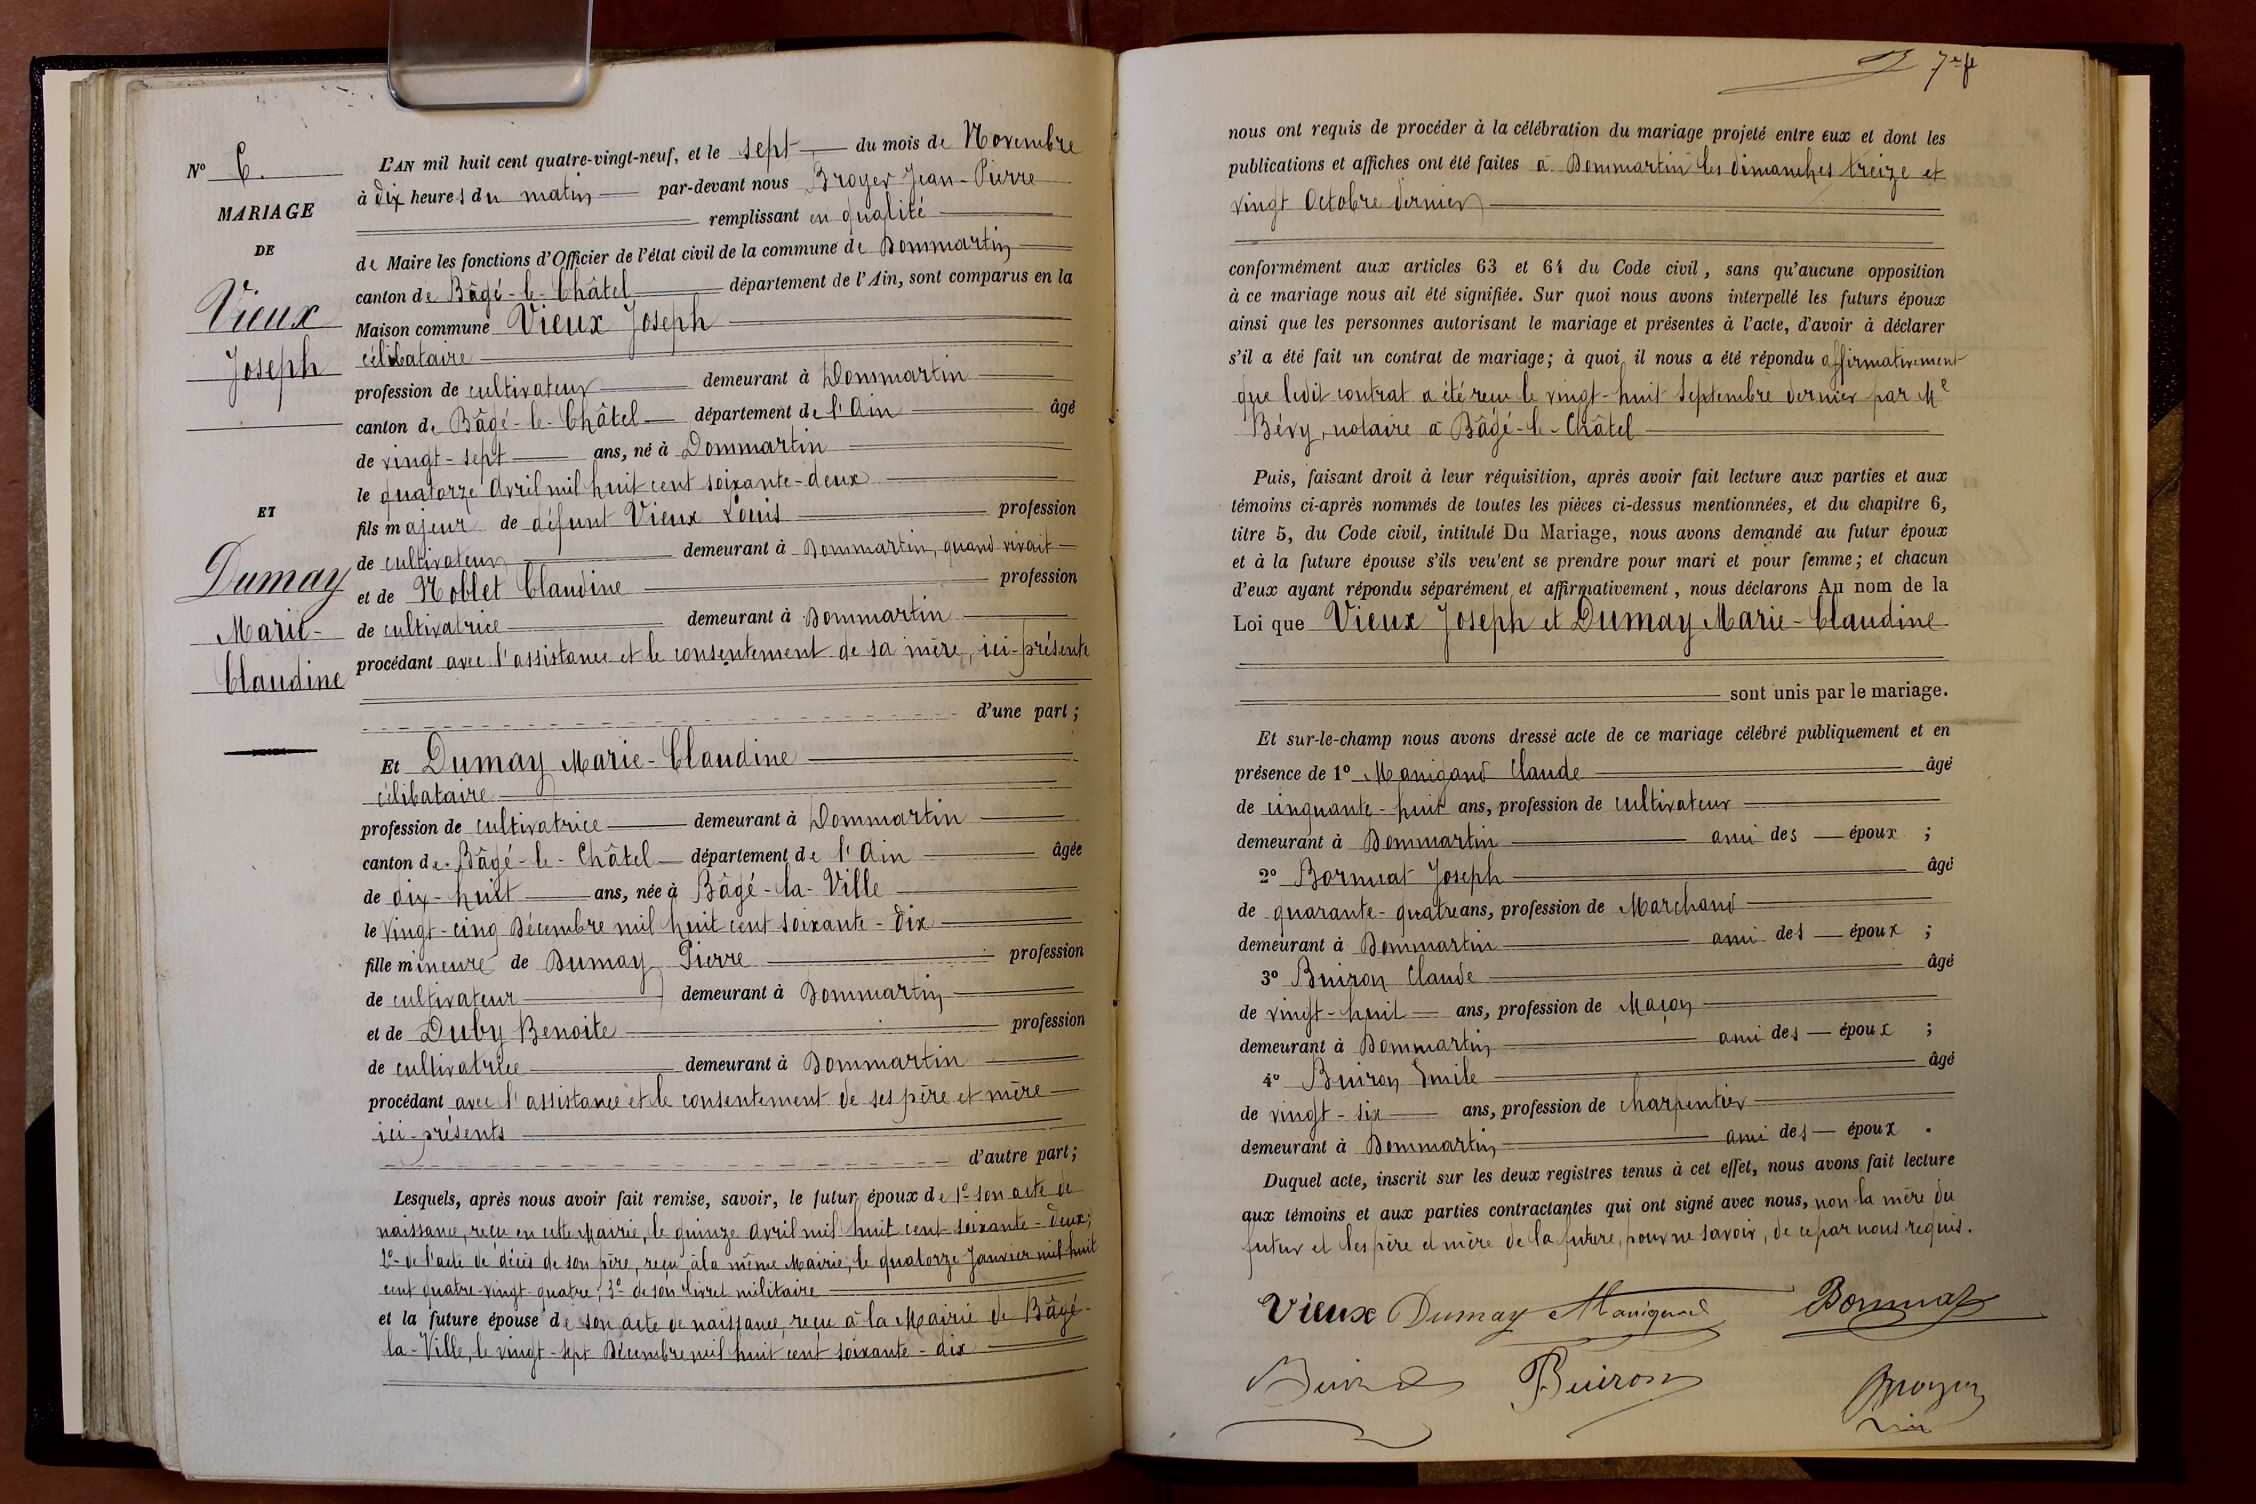 Nº 6.
MARIAGE
DE
Vieux
Joseph
ET
Dumay
Marie-
Claudine
L'AN mil huit cent quatre-vingt-neuf, et le sept du mois de Novembre
à dix heures du matin par-devant nous Broyer Jean-Pierre
remplissant en qualité
de Maire les fonctions d'Officier de l'état civil de la commune de Dommartin
canton de Bâgé-le-Châtel département de l'Ain, sont comparus en la
Maison commune Vieux Joseph
célibataire
profession de cultivateur demeurant à Dommartin
canton de Bâgé-le-Châtel département de l'Ain âgé
de vingt-sept ans, né à Dommartin
le quatorze Avril mil huit cent soixante-deux
fils majeur de défunt Vieux Louis profession
de cultivateur demeurant à Dommartin, quand vivait
et de Noblet Claudine profession
de cultivatrice demeurant à Dommartin
procédant avec l'assistance et le consentement de sa mère, ici-présente
d'une part ;
Et Dumay Marie-Claudine
célibataire
profession de cultivatrice demeurant à Dommartin
canton de Bâgé-le-Châtel département de l'Ain âgée
de dix-huit ans, née à Bâgé-la-Ville
le vingt-cinq Décembre mil huit cent soixante-dix
fille mineure de Dumay Pierre profession
de cultivateur demeurant à Dommartin
et de Duby Benoite profession
de cultivatrice demeurant à Dommartin
procédant avec l'assistance et le consentement de ses père et mère
ici-présents
d'autre part ;
Lesquels, après nous avoir fait remise, savoir, le futur époux de 1º son acte de
naissance, reçu en cette Mairie, le quinze Avril mil huit cent soixante-deux;
2º de l'acte de décès de son père, reçu à la même Mairie, le quatorze Janvier mil huit
cent quatre-vingt-quatre; 3º de son livret militaire
et la future épouse de son acte de naissance, reçu à la Mairie de Bâgé-
la-Ville, le vingt-sept Décembre mil huit cent soixante-dix
nous ont requis de procéder à la célébration du mariage projeté entre eux et dont les
publications et affiches ont été faites à Dommartin les dimanches treize et
vingt Octobre dernier
conformément aux articles 63 et 64 du Code civil, sans qu'aucune opposition
à ce mariage nous ait été signifiée. Sur quoi nous avons interpellé les futurs époux
ainsi que les personnes autorisant le mariage et présentes à l'acte, d'avoir à déclarer
s'il a été fait un contrat de mariage ; à quoi il nous a été répondu affirmativement
que ledit contrat a été reçu le vingt-huit Septembre dernier par Me
Bévy, notaire à Bâgé-le-Châtel
Puis, faisant droit à leur réquisition, après avoir fait lecture aux parties et aux
témoins ci-après nommés de toutes les pièces ci-dessus mentionnées, et du chapitre 6,
titre 5, du Code civil, intitulé Du Mariage, nous avons demandé au futur époux
et à la future épouse s'ils veu'ent se prendre pour mari et pour femme ; et chacun
d'eux ayant répondu séparément et affirmativement, nous déclarons Au nom de la
Loi que Vieux Joseph et Dumay Marie-Claudine
sont unis par le mariage.
Et sur-le-champ nous avons dressé acte de ce mariage célébré publiquement et en
présence de 1º Manigand Claude âgé
de cinquante-huit ans, profession de cultivateur
demeurant à Dommartin ami des époux ;
2º Bornuat Joseph âgé
de quarante-quatre ans, profession de Marchand
demeurant à Dommartin ami des époux ;
3º Buiron Claude âgé
de vingt-huit ans, profession de Maçon
demeurant à Dommartin ami des époux ;
4º Buiron Emile âgé
de vingt-six ans, profession de charpentier
demeurant à Dommartin ami des époux .
Duquel acte, inscrit sur les deux registres tenus à cet effet, nous avons fait lecture
aux témoins et aux parties contractantes qui ont signé avec nous, non la mère du
futur et les père et mère de la future, pour ne savoir, de ce par nous requis.
Vieux Dumay Manigand Bornuat
Buiron Buiron Broyer